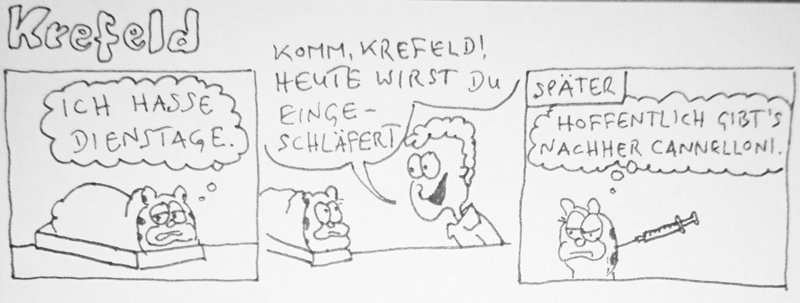 Krefeld
ICH HASSE
DIENSTAGE.
KOMM, KREFELD!
HEUTE WIRST DU
EINGE-
SCHLÄFERT
SPÄTER
HOFFENTLICH GIBT'S
NACHHER CANNELLONI.